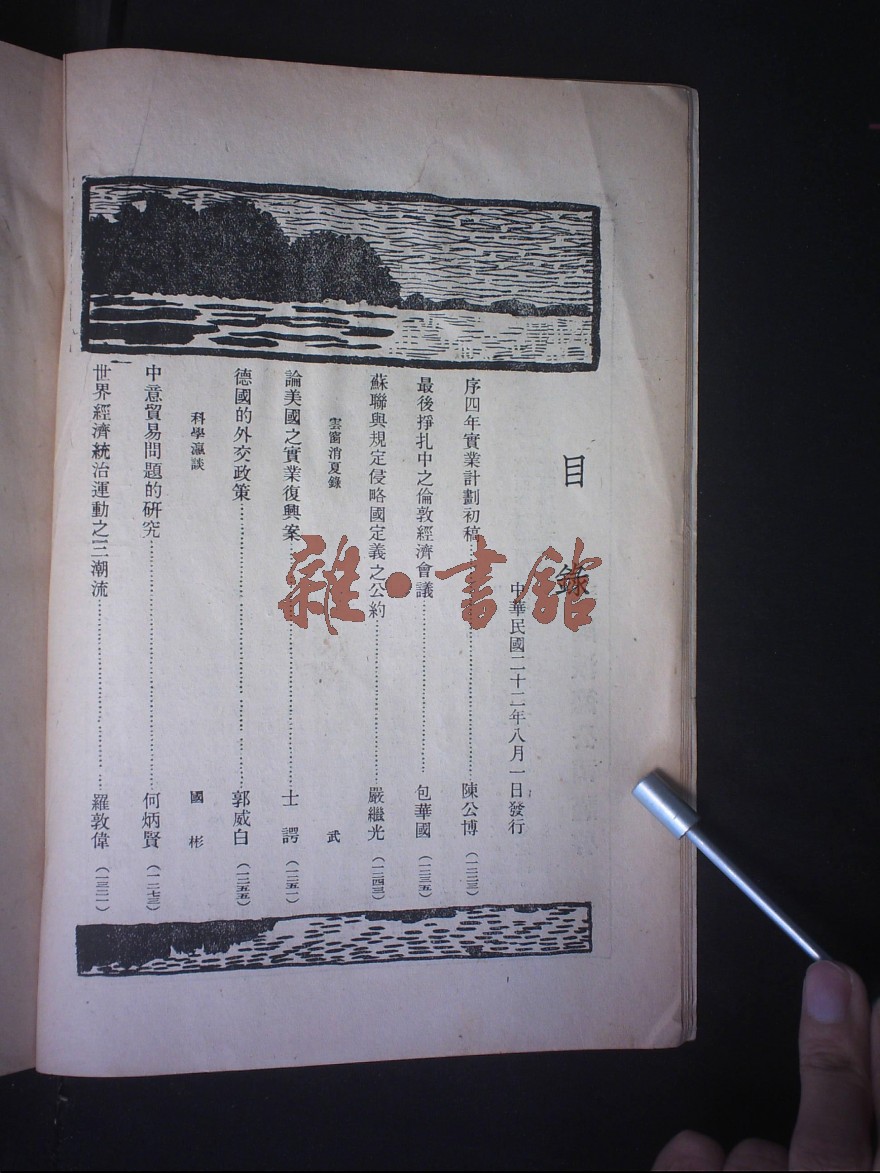 目錄
中華民國二十二年八月一日發行
序四年實業計劃初稿……陳公博(一二二三)
最後掙扎中之倫敦經濟會議……包華國(一二三五)
蘇聯與規定侵略國定義之公約……嚴繼光(一二四三)
雲窗消夏錄 武
論美國之實業復興案……士諤(一二五一)
德國的外交政策……郭威白(一二五五)
科學瀛談 國彬
中意貿易問題的研究……何炳賢(一二七三)
世界經濟統治運動之三潮流……羅敦偉(一三二一)
雜·書館